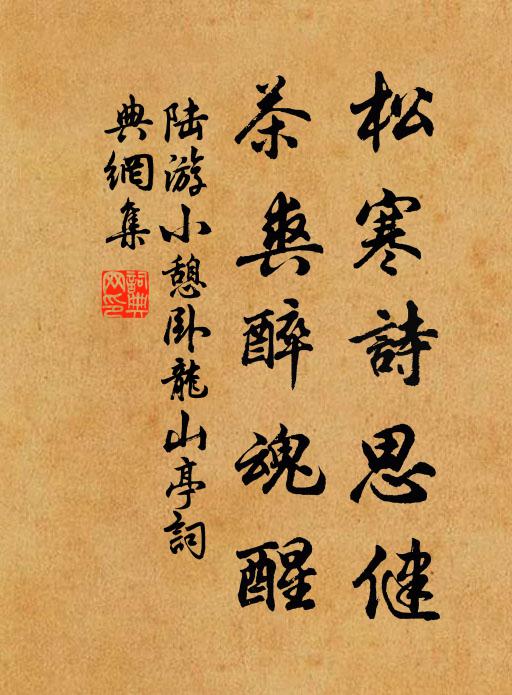 松寒詩思健
茶爽醉魂醒
陆游小憩卧龍山亭詞
典網集
詞典
网印